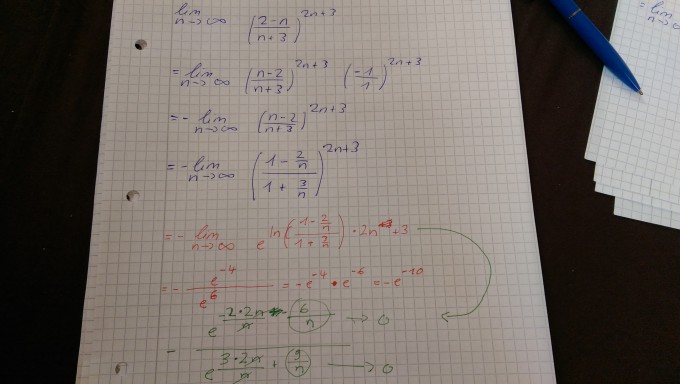 lim n→∞ ((2-n)/(n+3))^(2n+3)
= lim n→∞ ((n-2)/(n+3))^(2n+3) (-1/1)^(2n+3)
= - lim n→∞ ((n-2)/(n+3))^(2n+3)
= - lim n→∞ ((1 - 2/n)/(1 + 3/n))^(2n+3)
= - lim n→∞ e^(ln((1-2/n)/(1+3/n)) · 2n+3)
= - e^-4/e^6 = -e^-4 · e^-6 = -e^-10
- e^(-2·2n/n - 6/n) → 0
e^(3·2n/n + 9/n) → 0
= lim n→∞